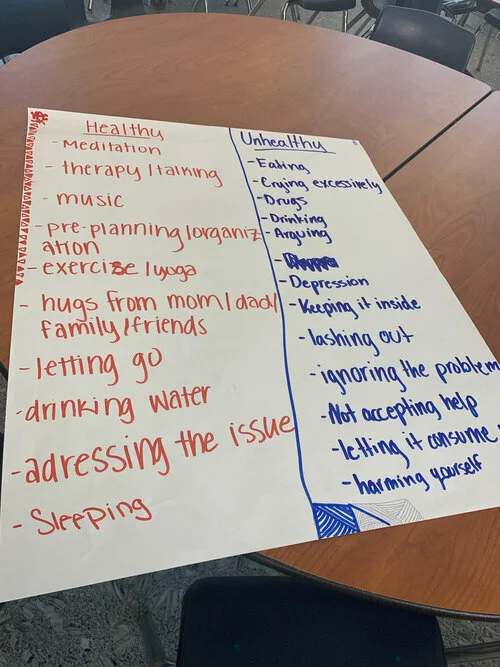 Healthy
- Meditation
- therapy / talking
- music
- pre-planning/organiz
ation
- exercise / yoga
- hugs from mom/dad/
family/friends
- letting go
- drinking water
- adressing the issue
- Sleeping
Unhealthy
- Eating
- Crying excessively
- Drugs
- Drinking
- Arguing
- Depression
- Keeping it inside
- lashing out
- ignoring the problem
- Not accepting help
- letting it consume
- harming yourself